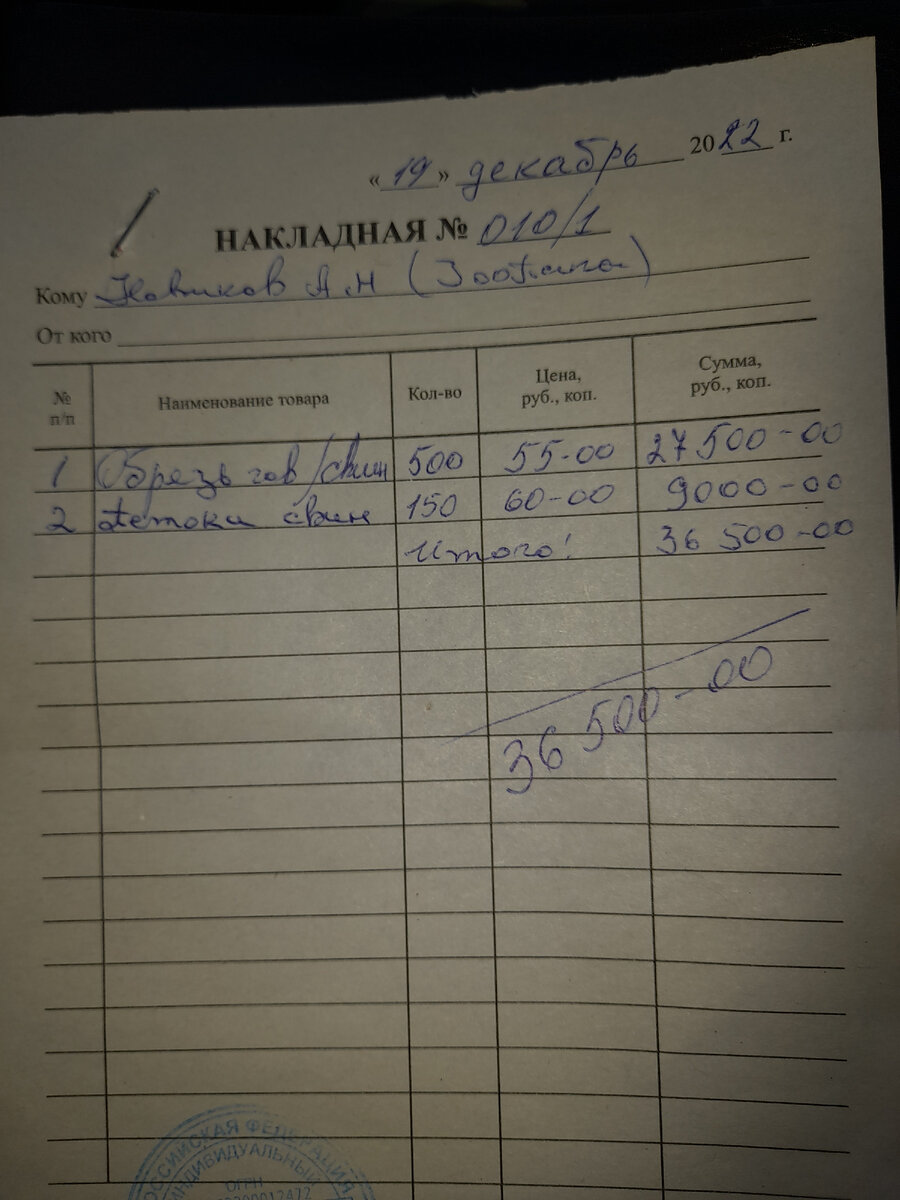 « 19 » декабрь 2022 г.
НАКЛАДНАЯ № 010/1
Кому Новиков А.Н
От кого
№ п/п Наименование товара Кол-во Цена, руб., коп. Сумма, руб., коп.
1 Обрезь гов/свин 500 55-00 27 500-00
2 свин 150 60-00 9000-00
Итого! 36 500-00
36 500-00
РОССИЙСКАЯ ФЕДЕРАЦИЯ
ИНДИВИДУАЛЬНЫЙ
ОГРН